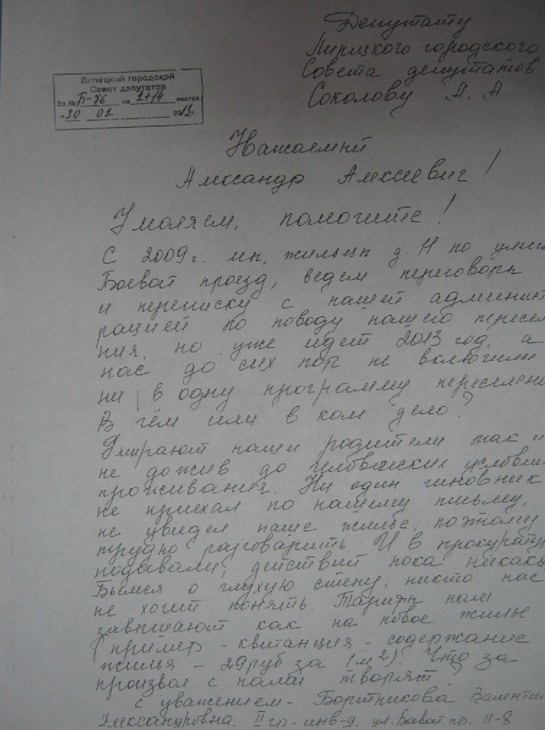 Депутату
Липецкого городского
Совета депутатов
Соколову А. А
Липецкий городской
Совет депутатов
Вх.№ Б-76 на 1+14 листах
«30 01 2013г.
Уважаемый
Александр Алексеевич!
Умоляем, помогите!
С 2009г. мы, жильцы д. 11 по улиц
Боевой проезд, ведем переговоры
и переписку с нашей админист
рацией по поводу нашего пересел
ния, но уже идет 2013 год, а
нас до сих пор не включили
ни в одну программу переселени
В чём или в ком дело?
Умирают наши родители так и
не дожив до человеческих условий
проживания. Ни один чиновник
не приехал по нашему письму,
не увидел наше жилье, поэтому
трудно разговарить. И в прокурату
подавали, действий пока никаки
Бьемся о глухую стену, никто нас
не хочет понять. Тарифы нам
завышают как на новое жилье.
(пример - квитанция - содержание
жилья - 29 руб за 1м²). Что за
произвол с нами творят.
с уважением - Бортникова Валенти
Александровна. II гр-инв-д. ул. Боевой пр. 11-8